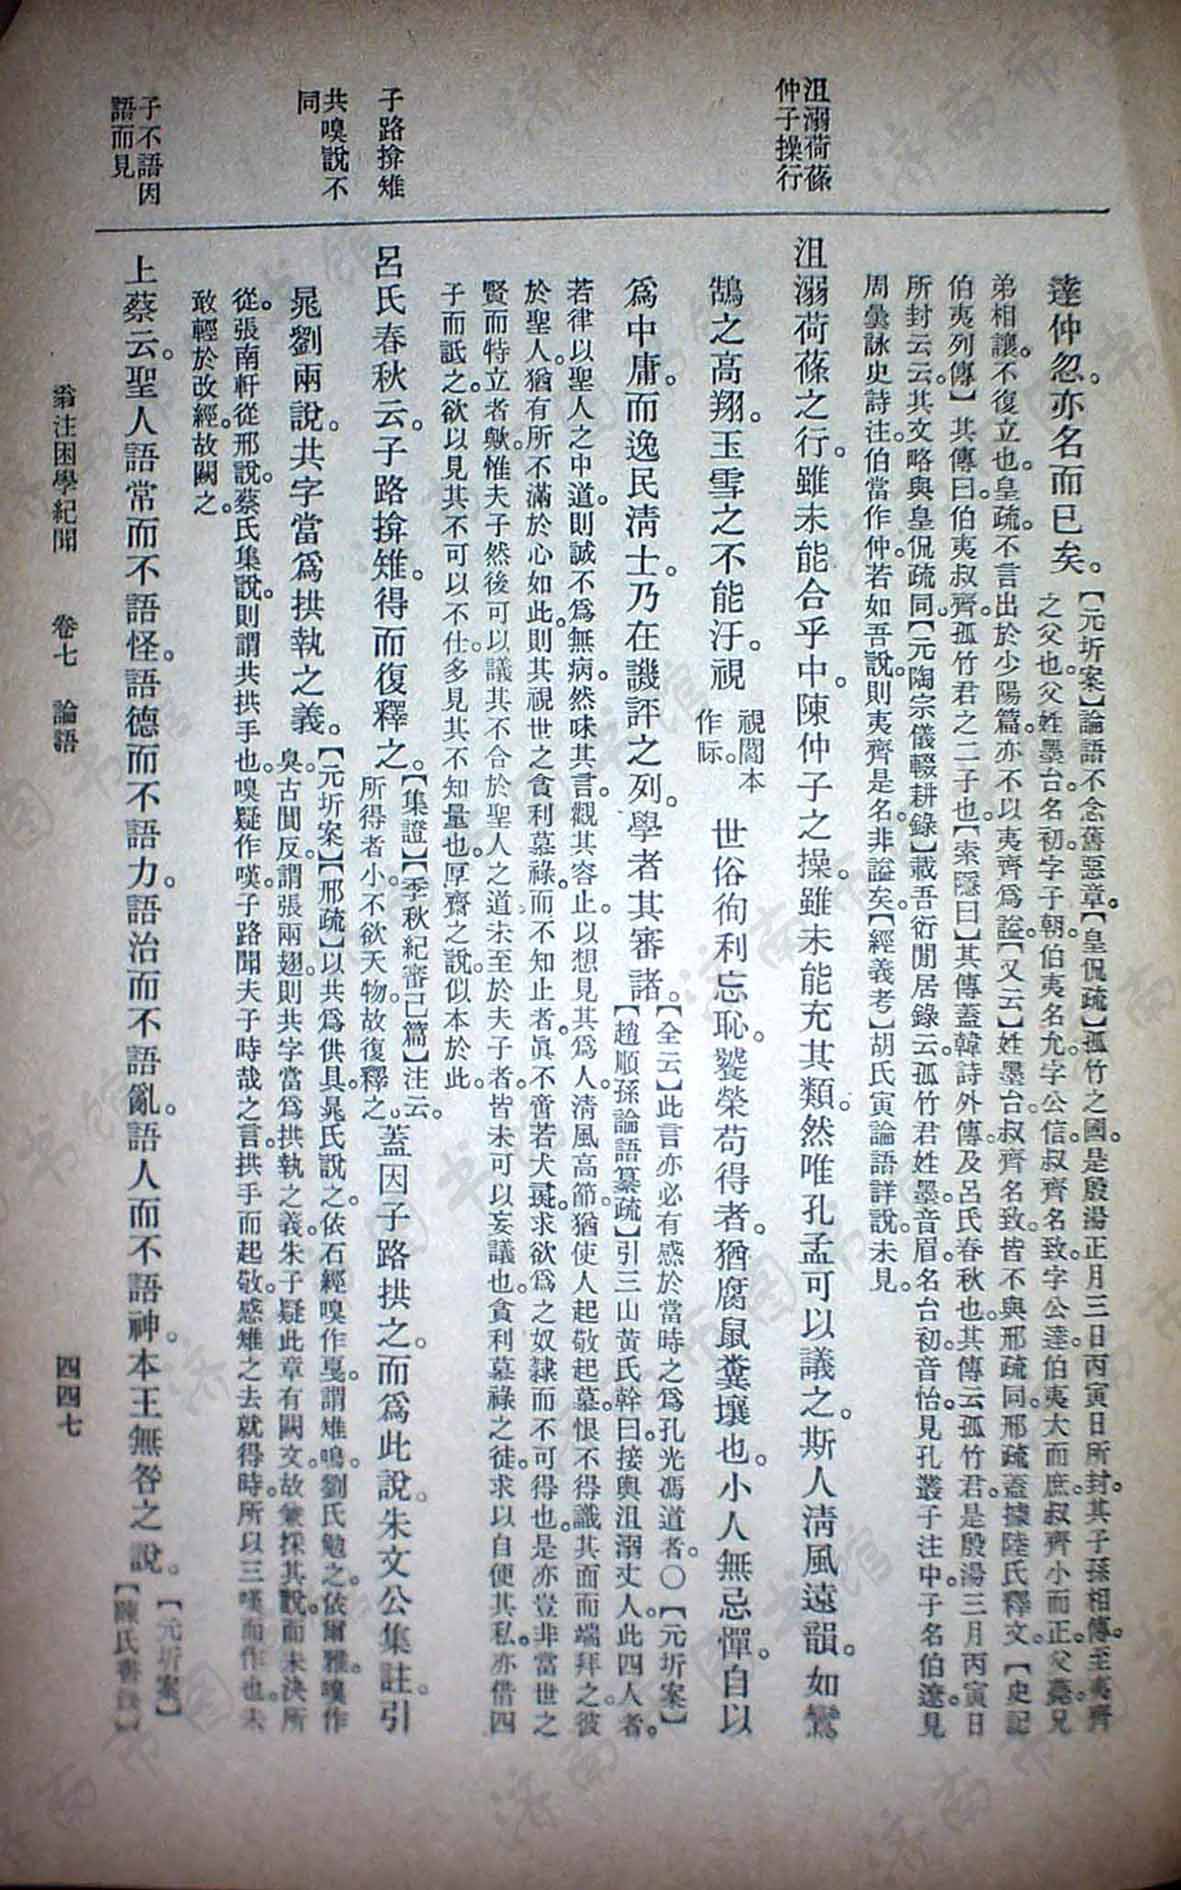 沮溺荷蓧
仲子操行
子路拚雉
共嗅說不
同
子不語因
語而見
逵仲忽亦名而已矣。
【元圻案】論語不念舊惡章【皇侃疏】孤竹之國。是殷湯正月三日丙寅日所封。其子孫相傳至夷齊
之父也。父姓墨台。名初。字子朝。伯夷名允。字公信。叔齊名致。字公逵。伯夷大而庶。叔齊小而正。父薨。兄
弟相讓。不復立也。皇疏。不言出於少陽篇。亦不以夷齊爲謚。【又云】姓墨台。叔齊名致。皆不與邢疏同。邢疏蓋據陸氏釋文。【史記
伯夷列傳】其傳曰。伯夷叔齊。孤竹君之二子也。【索隱曰】其傳蓋韓詩外傳及呂氏春秋也。其傳云。孤竹君。是殷湯三月丙寅日
所封云云。其文略與皇侃疏同。【元陶宗儀輟耕錄】載吾衍閒居錄云。孤竹君姓墨。音眉。名台初。音怡。見孔叢子注中。子名伯遼。見
周曇詠史詩注。伯當作仲。若如吾說。則夷齊是名。非謚矣。【經義考】胡氏寅論語詳說。未見。
沮溺荷蓧之行。雖未能合乎中。陳仲子之操。雖未能充其類。然唯孔孟可以議之。斯人淸風遠韻。如鸞
鵠之高翔。玉雪之不能汙。視
視閣本
作眎。
世俗徇利忘恥。饕榮苟得者。猶腐鼠糞壤也。小人無忌憚。自以
爲中庸。而逸民淸士。乃在譏評之列。學者其審諸。
【全云】此言亦必有感於當時之爲孔光馮道者。○【元圻案】
【趙順孫論語纂疏】引三山黃氏幹曰。接輿沮溺丈人。此四人者。
若律以聖人之中道。則誠不爲無病。然味其言。觀其容止。以想見其爲人。淸風高節。猶使人起敬起慕。恨不得識其面而端拜之。彼
於聖人。猶有所不滿於心如此。則其視世之貪利慕祿。而不知止者。眞不啻若犬彘。求欲爲之奴隸而不可得也。是亦豈非當世之
賢而特立者歟。惟夫子然後可以議其不合於聖人之道。未至於夫子者。皆未可以妄議也。貪利慕祿之徒。求以自便其私。亦借四
子而詆之。欲以見其不可以不仕。多見其不知量也。厚齋之說。似本於此。
呂氏春秋云。子路揜雉。得而復釋之。
【集證】【季秋紀審己篇】注云。
所得者小。不欲夭物。故復釋之。
蓋因子路拱之。而爲此說。朱文公集註。引
晁劉兩說。共字當爲拱執之義。
【元圻案】【邢疏】以共爲供具。晁氏說之。依石經嗅作戛。謂雉鳴。劉氏勉之。依爾雅。嗅作
臭。古闃反。謂張兩翅。則共字當爲拱執之義。朱子疑此章有闕文。故兼採其說。而未決所
從。張南軒從邢說。蔡氏集說。則謂共拱手也。嗅疑作嘆。子路聞夫子時哉之言。拱手而起敬。感雉之去就得時。所以三嘆而作也。未
敢輕於改經。故闕之。
上蔡云。聖人語常而不語怪。語德而不語力。語治而不語亂。語人而不語神。本王無咎之說。
【元圻案】
翁注困學紀聞　卷七　論語　四四七